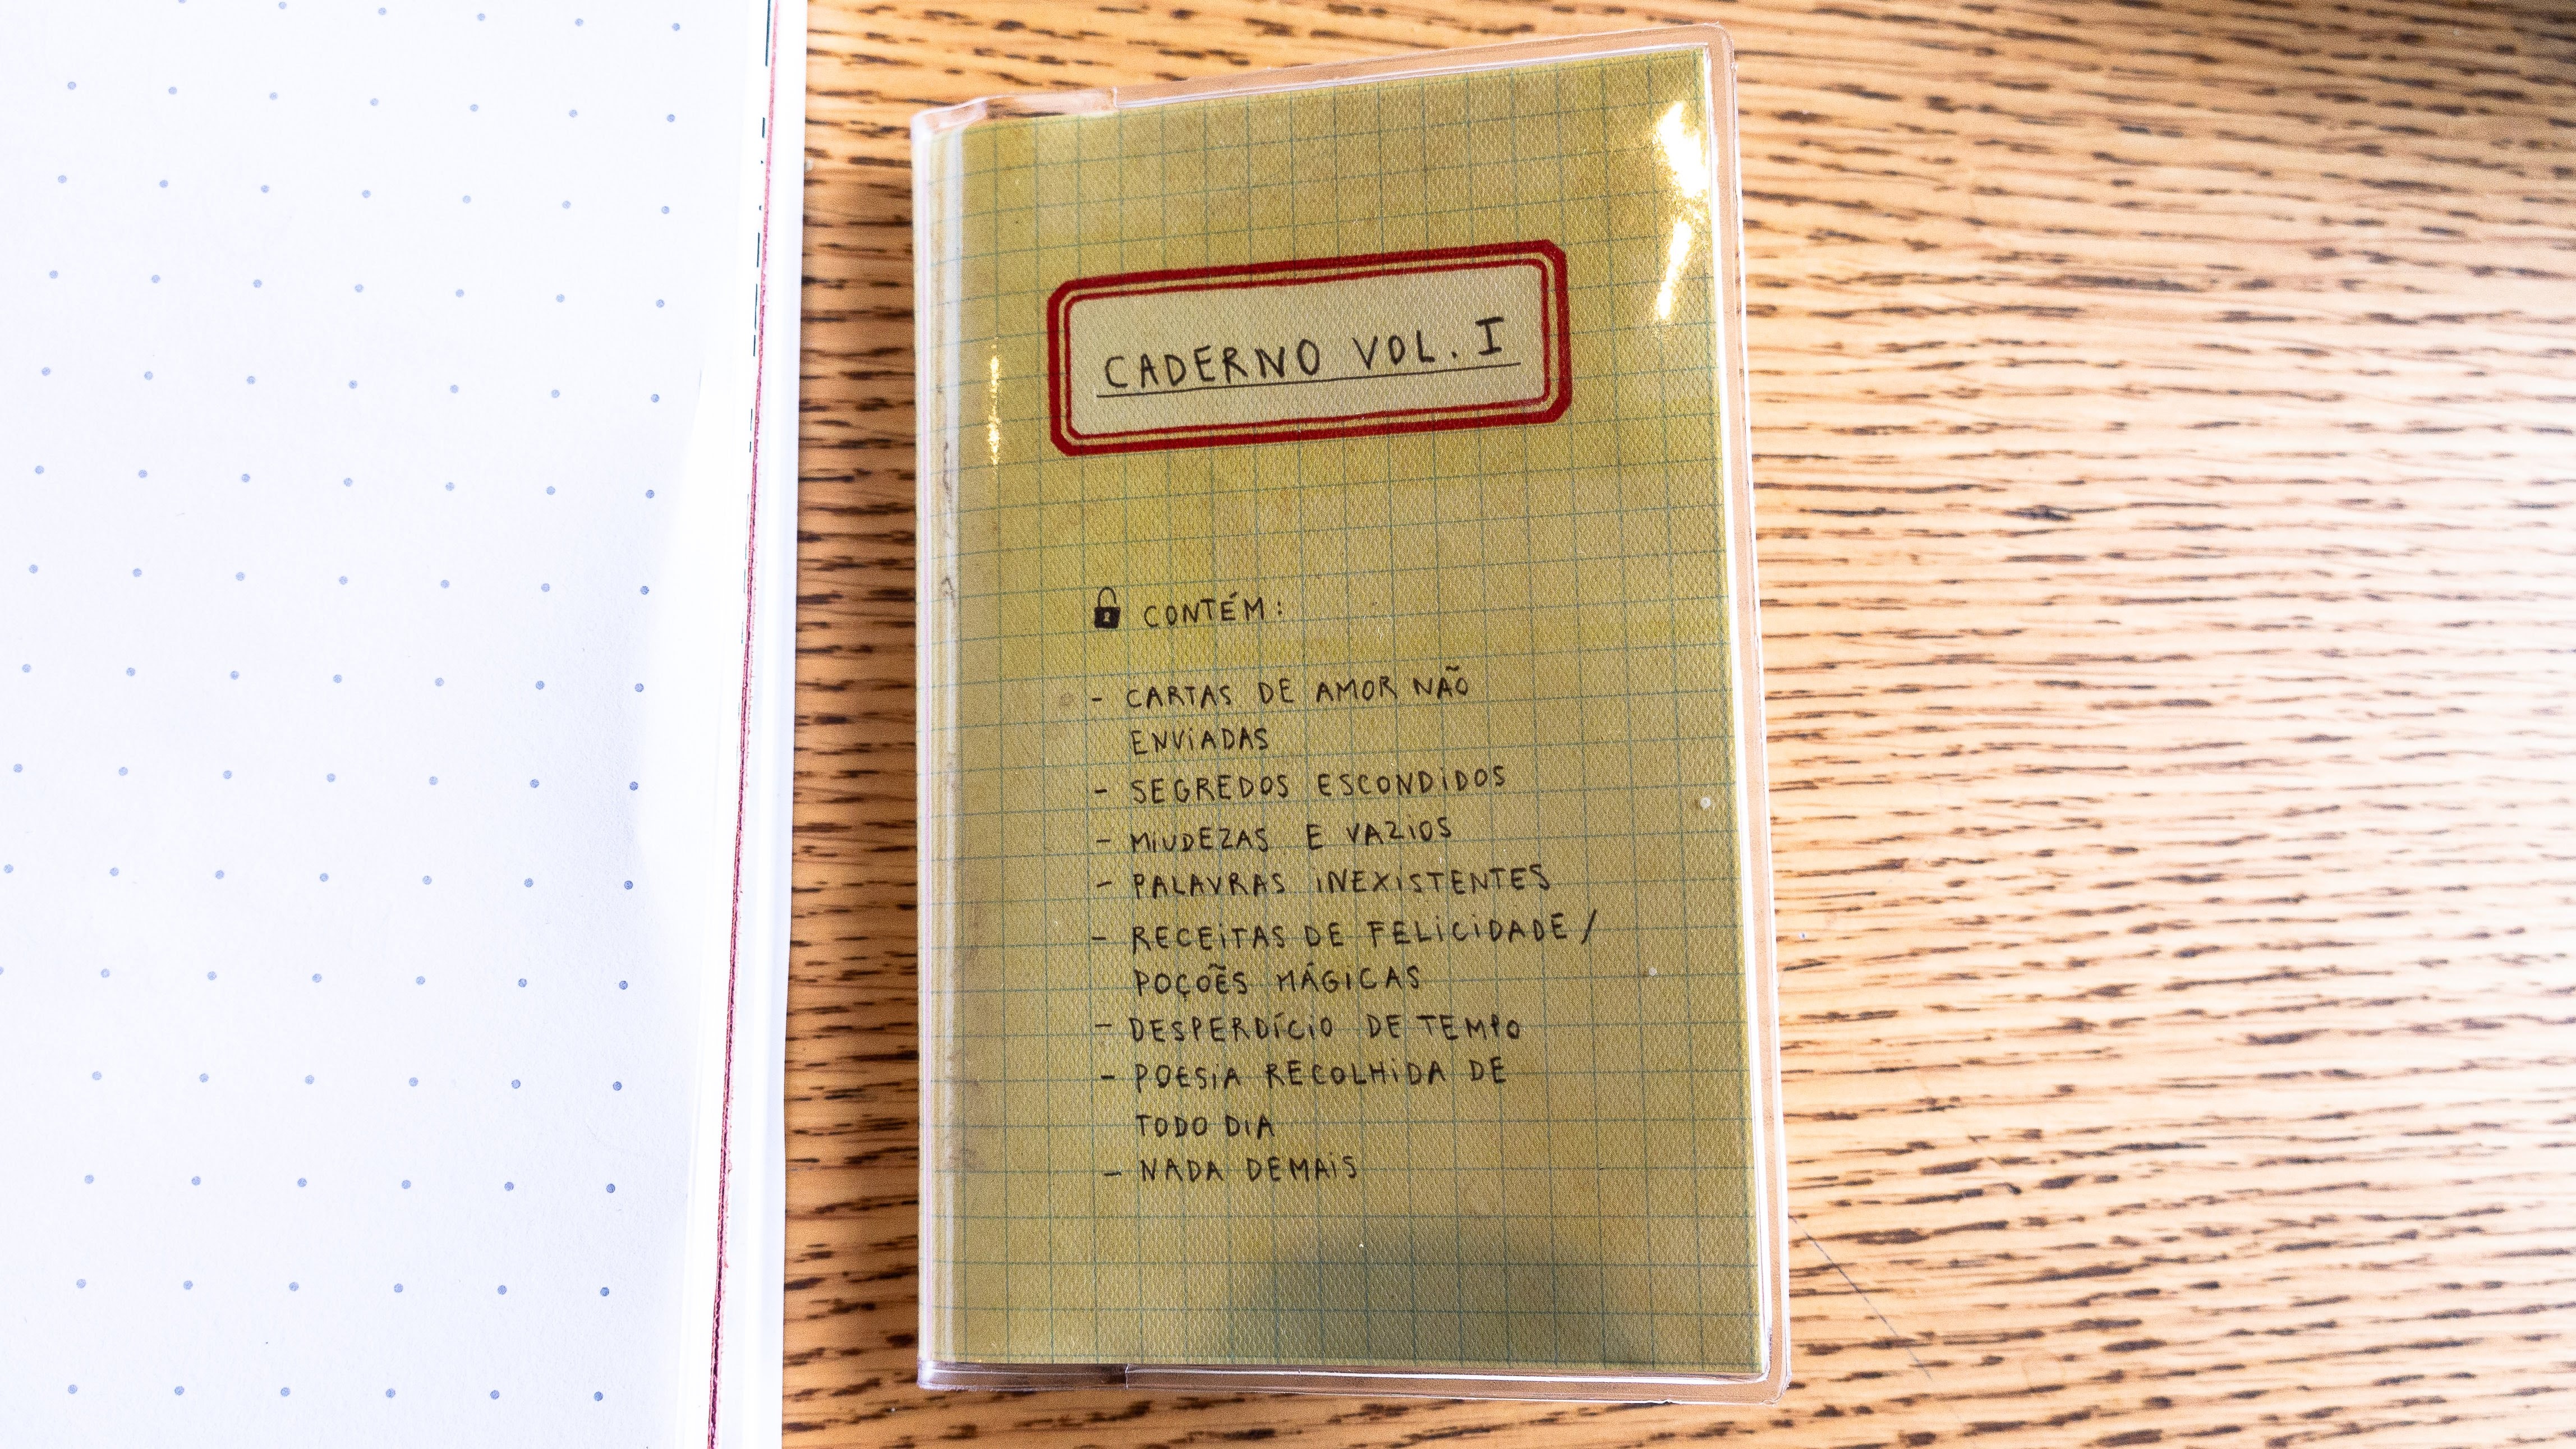 CADERNO VOL. I
CONTÉM:
- CARTAS DE AMOR NÃO
ENViADAS
- SEGREDOS ESCONDiDOS
- MiUDEZAS E VAZiOS
- PALAVRAS iNEXiSTENTES
- RECEiTAS DE FELiCiDADE /
POÇÕES MÁGICAS
- DESPERDÍCiO DE TEMPO
- POESiA RECOLHiDA DE
TODO DiA
- NADA DEMAiS